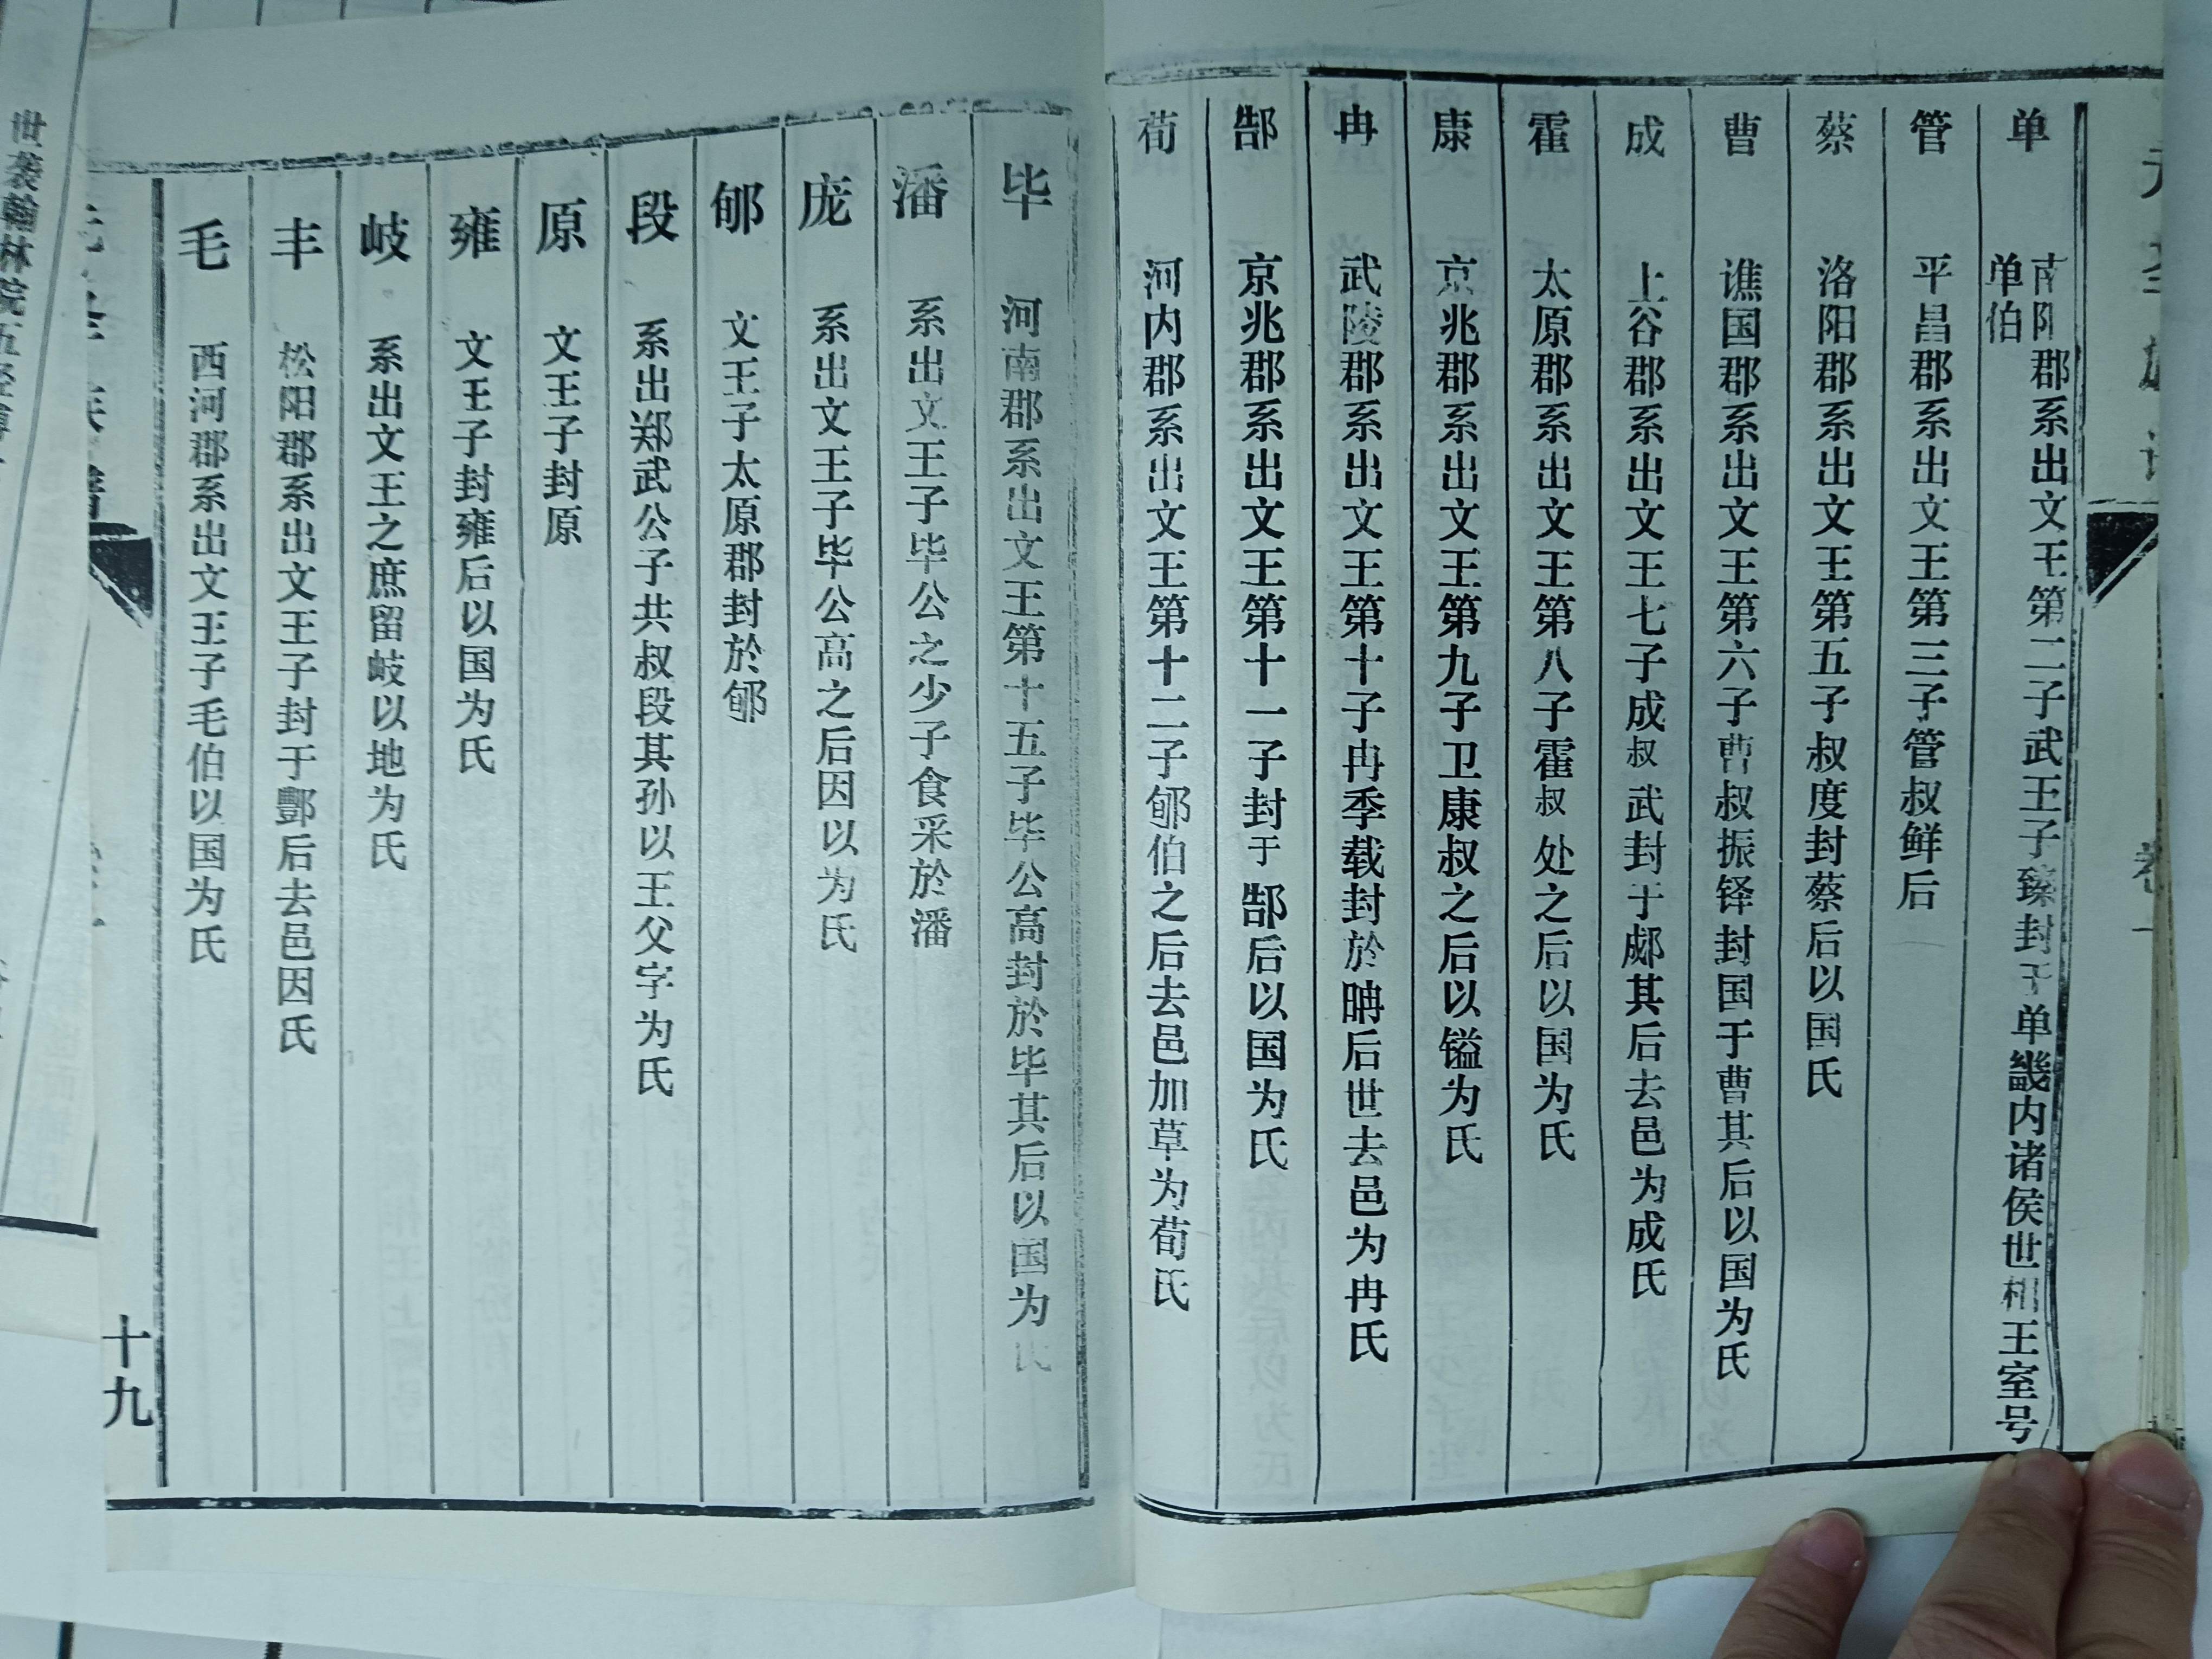 单 南阳郡系出文王第二子武王子臻封于单畿内诸侯世相王室号
单伯
管 平昌郡系出文王第三子管叔鲜后
蔡 洛阳郡系出文王第五子叔度封蔡后以国氏
曹 谯国郡系出文王第六子曹叔振铎封国于曹其后以国为氏
成 上谷郡系出文王七子成叔武封于郕其后去邑为成氏
霍 太原郡系出文王第八子霍叔处之后以国为氏
康 京兆郡系出文王第九子卫康叔之后以镒为氏
冉 武陵郡系出文王第十子冉季载封於聃后世去邑为冉氏
郜 京兆郡系出文王第十一子封于郜后以国为氏
荀 河内郡系出文王第十二子郇伯之后去邑加草为荀氏
毕 河南郡系出文王第十五子毕公高封於毕其后以国为氏
潘 系出文王子毕公之少子食采於潘
庞 系出文王子毕公高之后因以为氏
郇 文王子太原郡封於郇
段 系出郑武公子共叔段其孙以王父字为氏
原 文王子封原
雍 文王子封雍后以国为氏
岐 系出文王之庶留岐以地为氏
丰 松阳郡系出文王子封于酆后去邑因氏
毛 西河郡系出文王子毛伯以国为氏
十九
世袭翰林院五经博